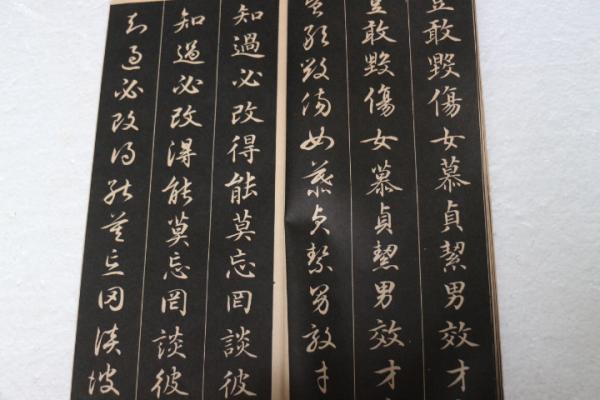 豈敢毀傷女慕貞絜男效才
豈敢毀傷女慕貞絜男效才
豈敢毀傷女慕貞絜男效才
知過必改得能莫忘罔談彼
知過必改得能莫忘罔談彼
知過必改得能莫忘罔談彼